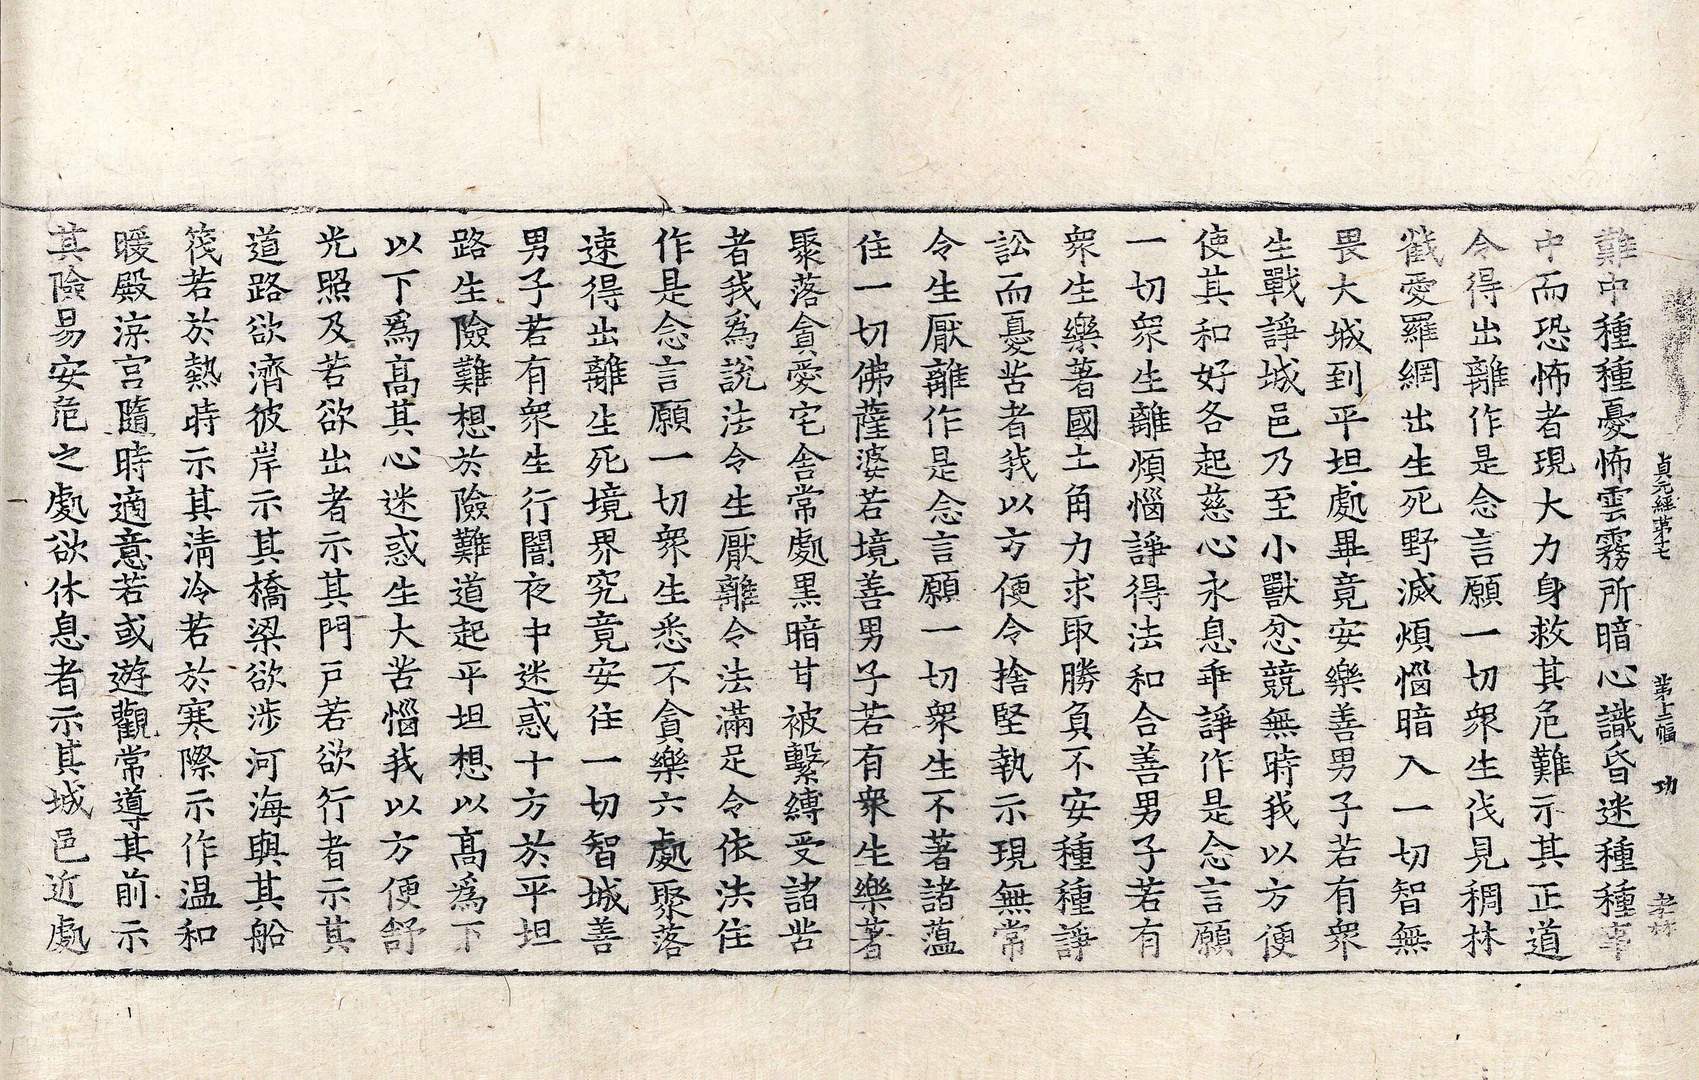 貞元經第十七　第十二幅　功　孝林
難中種種憂怖雲霧所暗心識昏迷種種幸
中而恐怖者現大力身救其危難示其正道
令得出離作是念言願一切衆生伐見稠林
截愛羅網出生死野滅煩惱暗入一切智無
畏大城到平坦處畢竟安樂善男子若有衆
生戰諍城邑乃至小獸忿競無時我以方便
使其和好各起慈心永息乖諍作是念言願
一切衆生離煩惱諍得法和合善男子若有
衆生樂著國土角力求取勝負不安種種諍
訟而憂苦者我以方便令捨堅執示現無常
令生厭離作是念言願一切衆生不著諸蘊
住一切佛薩婆若境善男子若有衆生樂著
聚落貪愛宅舍常處黑暗甘被繫縛受諸苦
者我爲說法令生厭離令法滿足令依法住
作是念言願一切衆生悉不貪樂六處聚落
速得出離生死境界究竟安住一切智城善
男子若有衆生行闇夜中迷惑十方於平坦
路生險難想於險難道起平坦想以高爲下
以下爲高其心迷惑生大苦惱我以方便舒
光照及若欲出者示其門戶若欲行者示其
道路欲濟彼岸示其橋梁欲涉河海與其船
筏若於熱時示其清冷若於寒際示作温和
暖殿涼宮隨時適意若或遊觀常導其前示
其險易安危之處欲休息者示其城邑近處